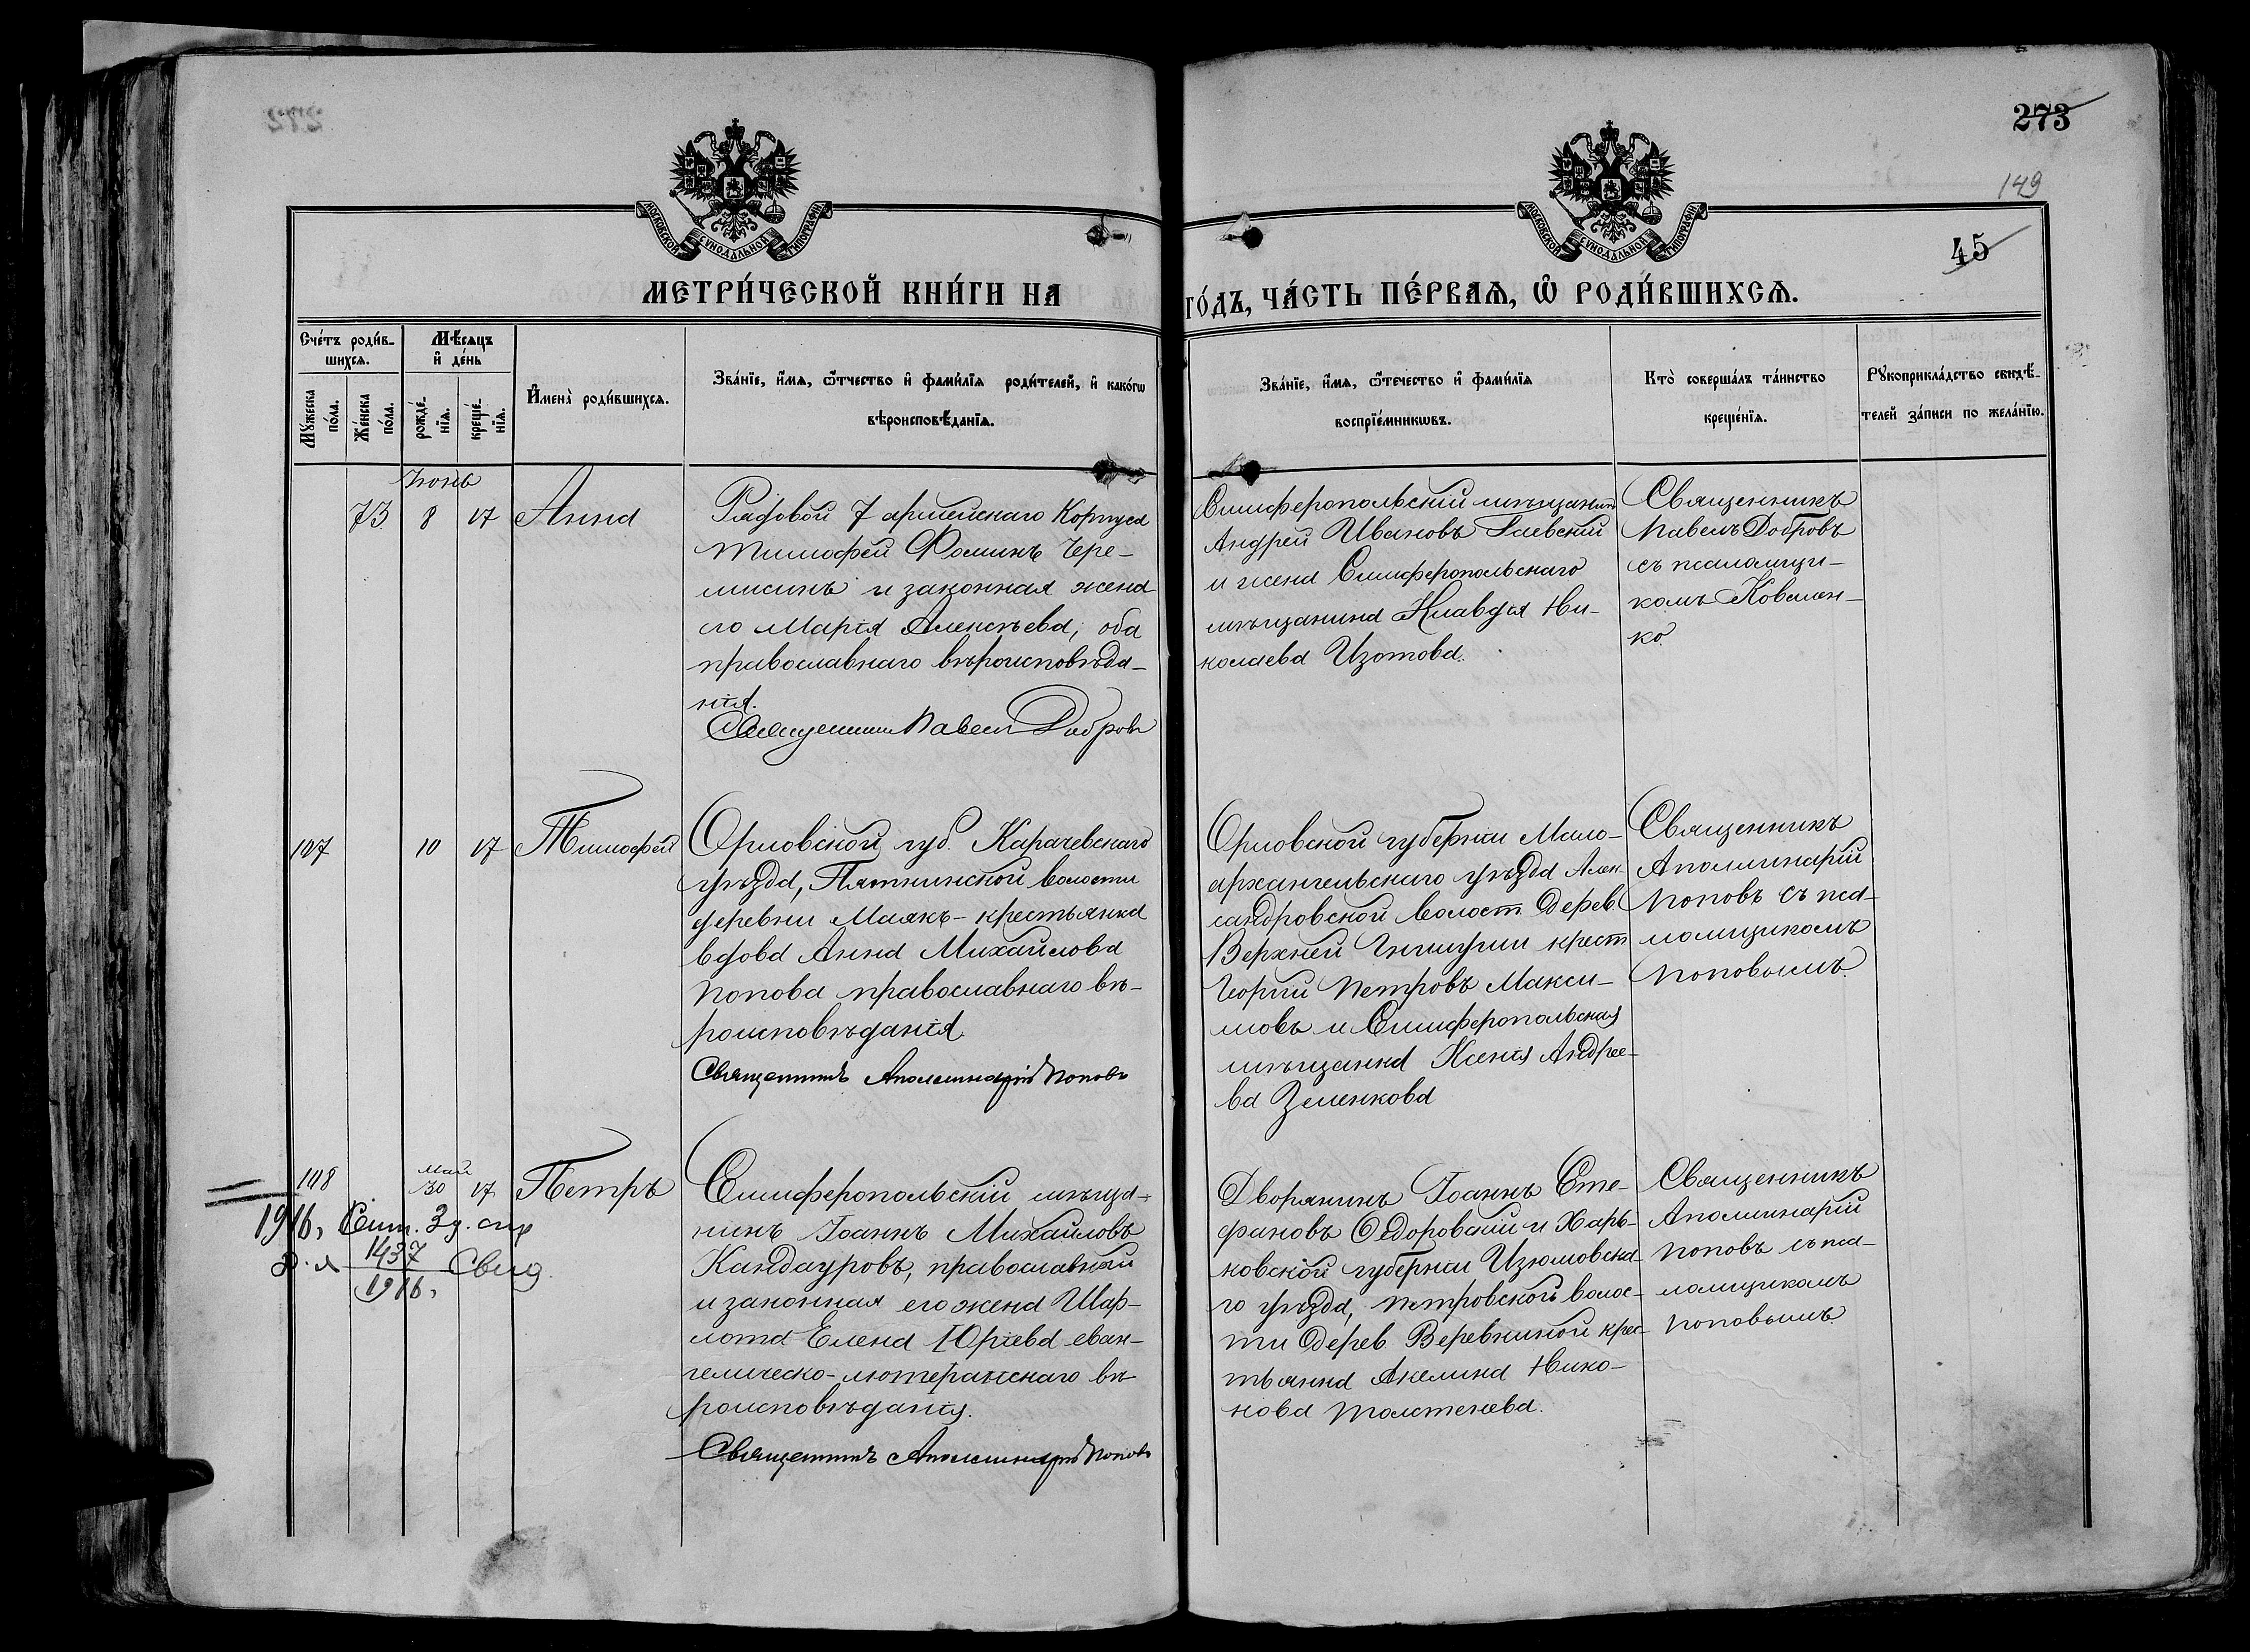 273
149
45
МОСКОВСКОЙ СУНОДАЛЬНОЙ ТИПОГРАФІИ
МОСКОВСКОЙ СУНОДАЛЬНОЙ ТИПОГРАФІИ
МЕТРИ́ЧЕСКОЙ КНИ́ГИ НА
ГО́ДЪ, ЧА́СТЬ ПЕ́РВАѦ, Ѡ҆ РОДИ́ВШИХСѦ.
Сче́тъ роди́в-
шихсѧ.
Мꙋ́жеска
по́ла.
Же́нска
по́ла.
Мѣ́сѧцъ
и҆ де́нь
рожде́-
нїѧ.
креще́-
нїѧ.
И҆мена̀ роди́вшихсѧ.
Зва́нїе, и҆́мѧ, ѻ҆́тчество и҆ фами́лїѧ роди́телей, и҆ како́гѡ
вѣроисповѣ́данїѧ.
Зва́нїе, и҆́мѧ, ѻ҆те́чество и҆ фами́лїѧ
воспрїе́мникѡвъ.
Кто̀ соверша́лъ та́инство
креще́нїѧ.
Рꙋкоприкла́дство свидѣ́-
телей за́писи по жела́нїю.
Іюнь
73 8 17 Анна
Рядовой 7 армейскаго Корпуса
Тимофей Фоминъ Чере-
мисинъ и законная жена
его Марія Алексѣева, оба
православнаго вѣроисповѣда-
нія.
Священникъ Павелъ Добровъ
Симферопольскій мѣщанин
Андрей Ивановъ Гаевскій
и жена Симферопольскаго
мѣщанина Клавдія Ни-
колаева Изотова.
Священникъ
Павелъ Добровъ
съ псаломщи-
комъ Ковален-
ко.
107 10 17 Тимофей
Орловской губ. Карачевскаго
уѣзда, Пятницкой волости
деревни Маякъ - крестьянка
вдова Анна Михайлова
Попова православнаго вѣ-
роисповѣданія.
Священникъ Аполлинарій Поповъ
Орловской губерніи Мало-
архангельскаго уѣзда Алек-
сандровской волост. дерев.
Верхней крест
Георгій Петровъ Макси-
мовъ и Симферопольская
мѣщанка Ксенія Андрее-
ва Зеленкова
Священникъ
Аполлинарій
Поповъ съ пса-
ломщикомъ
Поповымъ.
108 май 30 17 Петръ
1916, Сент. 3 д.
1437
1916. Свид.
Симферопольскій мѣща-
нинъ Іоаннъ Михайловъ
Кандауровъ, православный
и законная его жена Шар-
лота Елена Юріева еван-
гелическо-лютеранскаго вѣ-
роисповѣданія.
Священникъ Аполлинарій Поповъ
Дворянинъ Іоаннъ Сте-
фановъ Ѳедоровскій и Харь-
ковской губерніи Изюмовска-
го уѣзда, Петровской волос-
ти дерев. Веревкиной крес-
тьянка Акелина Нико-
нова Толстенева.
Священникъ
Аполлинарій
Поповъ съ пса-
ломщикомъ
Поповымъ.